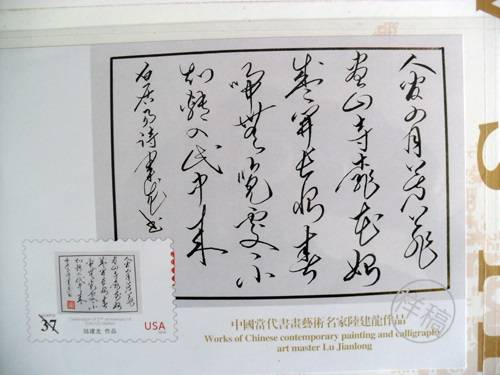 人間四月芳菲
盡山寺桃花始
盛開長恨春
歸無覓處不
知轉入此中來
白居易詩 建龍書
37
陆建龙 作品
USA
样稿
中國當代書畫藝術名家陸建龍作品
Works of Chinese contemporary painting and calligraphy
art master Lu Jianlong